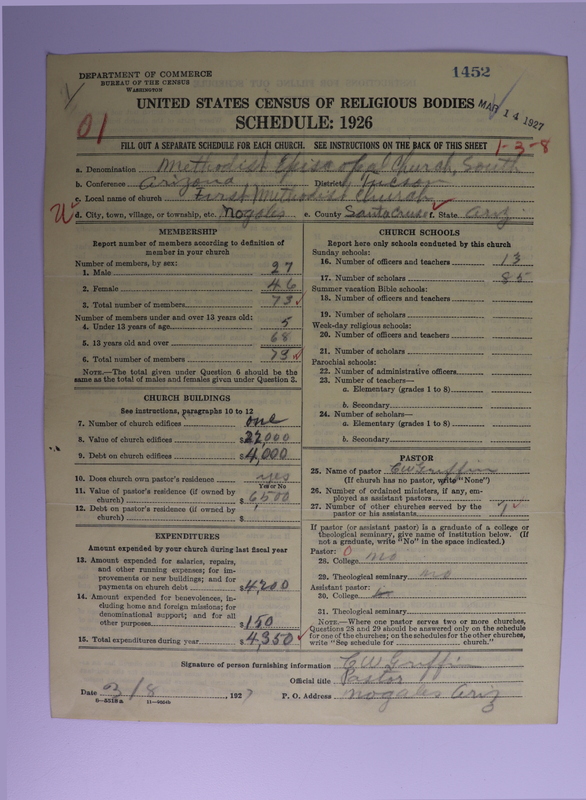 DEPARTMENT OF COMMERCE
BUREAU OF THE CENSUS
WASHINGTON
1452
UNITED STATES CENSUS OF RELIGIOUS BODIES
MAR 14 1927
SCHEDULE: 1926
01
FILL OUT A SEPARATE SCHEDULE FOR EACH CHURCH. SEE INSTRUCTIONS ON THE BACK OF THIS SHEET
1-3-8
a. Denomination Methodist Episcopal Church, South
b. Conference Arizona District Tucson
c. Local name of church First Methodist Church
d. City, town, village, or township, etc. Nogales e. County Santa Cruz f. State Ariz
MEMBERSHIP
Report number of members according to definition of
member in your church
Number of members, by sex:
1. Male 27
2. Female 46
3. Total number of members 73
Number of members under and over 13 years old:
4. Under 13 years of age 5
5. 13 years old and over 68
6. Total number of members 73
NOTE.—The total given under Question 6 should be the
same as the total of males and females given under Question 3.
CHURCH BUILDINGS
See instructions, paragraphs 10 to 12
7. Number of church edifices one
8. Value of church edifices $ 22,000
9. Debt on church edifices $ 4,000
10. Does church own pastor's residence yes
Yes or No
11. Value of pastor's residence (if owned by
church) $ 6500
12. Debt on pastor's residence (if owned by
church) $
EXPENDITURES
Amount expended by your church during last fiscal year
13. Amount expended for salaries, repairs,
and other running expenses; for im-
provements or new buildings; and for
payments on church debt $ 4200
14. Amount expended for benevolences, in-
cluding home and foreign missions; for
denominational support; and for all
other purposes $ 150
15. Total expenditures during year $ 4,350
CHURCH SCHOOLS
Report here only schools conducted by this church
Sunday schools:
16. Number of officers and teachers 13
17. Number of scholars 85
Summer vacation Bible schools:
18. Number of officers and teachers
19. Number of scholars
Week-day religious schools:
20. Number of officers and teachers
21. Number of scholars
Parochial schools:
22. Number of administrative officers
23. Number of teachers—
a. Elementary (grades 1 to 8)
b. Secondary
24. Number of scholars—
a. Elementary (grades 1 to 8)
b. Secondary
PASTOR
25. Name of pastor C W Griffin
(If church has no pastor, write "None")
26. Number of ordained ministers, if any, em-
ployed as assistant pastors
27. Number of other churches served by the
pastor or his assistants
If pastor (or assistant pastor) is a graduate of a college or
theological seminary, give name of institution below. (If
not a graduate, write "No" in the space indicated.)
Pastor: 0
28. College no
29. Theological seminary no
Assistant pastor:
30. College
31. Theological seminary
NOTE.—Where one pastor serves two or more churches,
Questions 28 and 29 should be answered only on the schedule
for one of the churches; on the schedules for the other churches,
write "See schedule for church."
Signature of person furnishing information C W Griffin
Official title Pastor
Date 3/8, 1927 P. O. Address Nogales Ariz
8-5518a